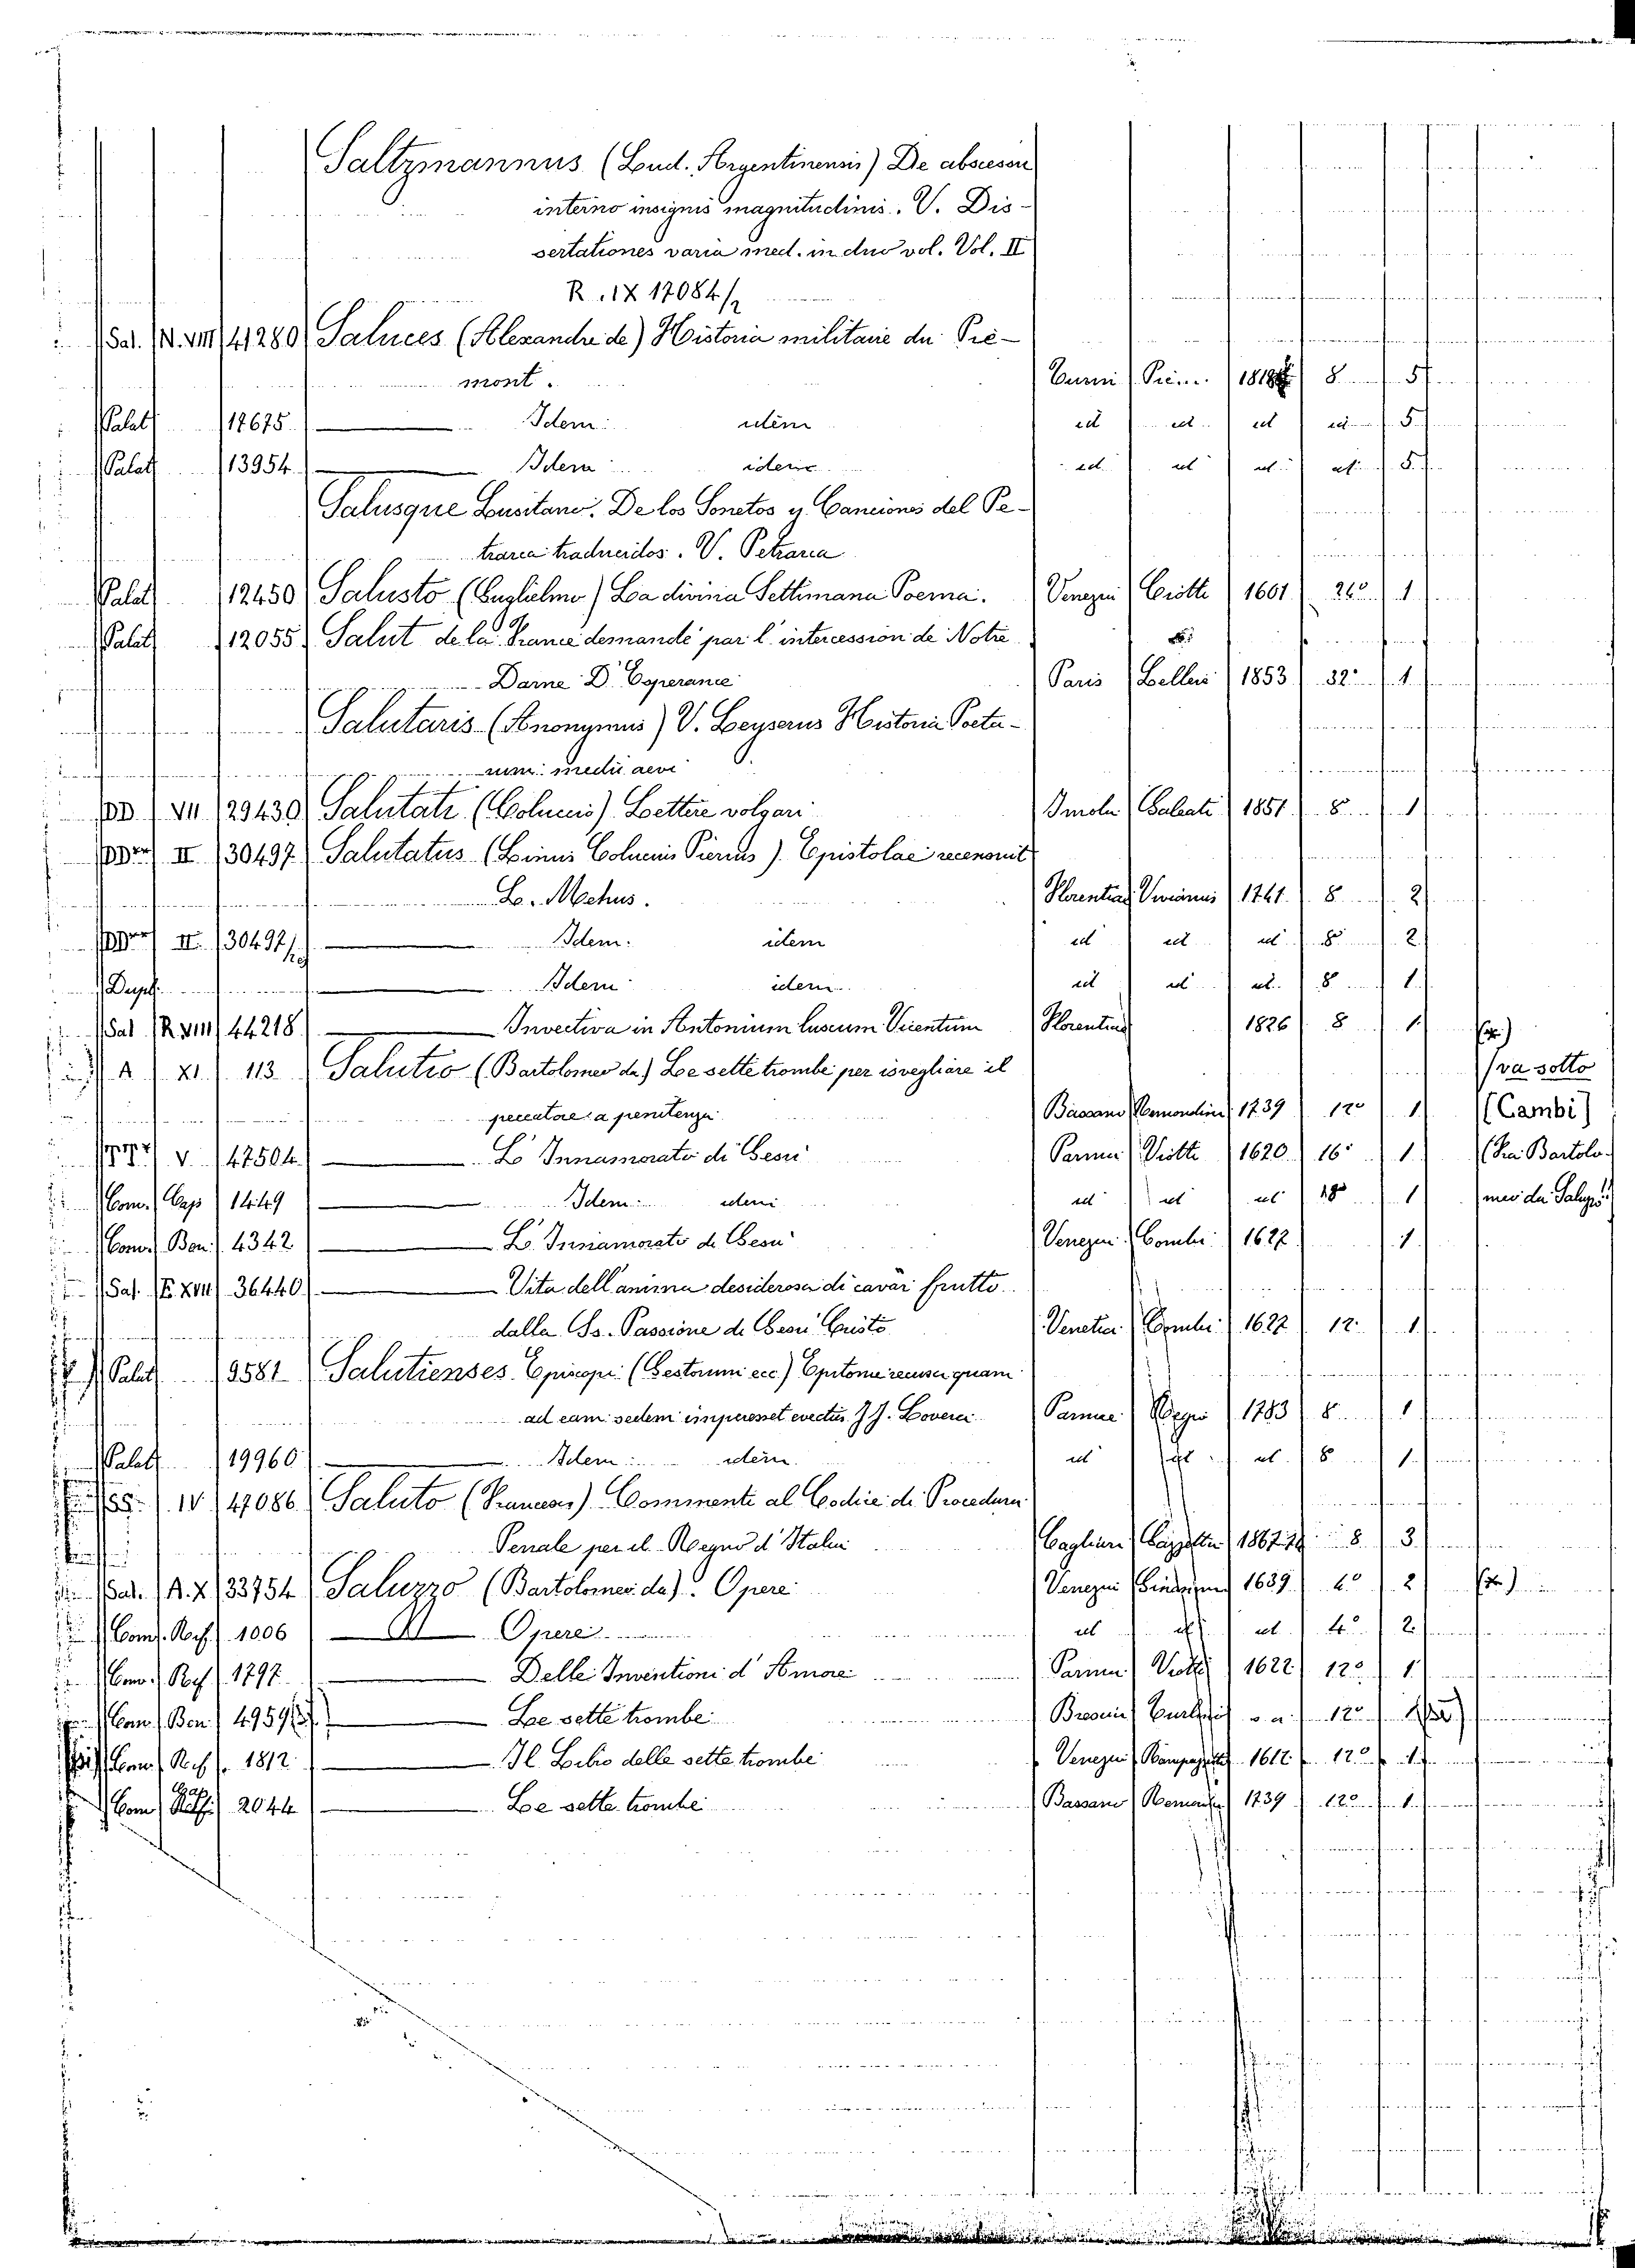 Saltzmannus (Lud. Argentinensis) De abscessu
interno insignis magnitudinis. V. Dis-
sertationes varia med. in duo vol. Vol. II
R. IX 17084/2
Sal. N. VIII 41280 Saluces (Alexandre de) Historia militarie du Pié-
mont. Turin 1818 8 5
Palat 17675 Idem idem id id id id 5
Palat 13954 Idem idem id id id id 5
Salusque Lusitano. De los Sonetos y Canciones del Pe-
trarca traducidos. V. Petrarca
Palat 12450 Salusto (Guglielmo) La divina Settimana Poema. Venezia Ciotti 1601 1
Palat 12055 Salut de la France demandé par l'intercession de Notre
Dame D'Esperance Paris 1853 32° 1
Salutaris (Anonymus) V. Leyserus Historia Poeta-
rum medii aevi
DD VII 29430 Salutati (Coluccio) Lettere volgari Imola Galeati 1851 8 1
II 30497 Salutatus (Linus Colucius Pierius) Epistolae recensuit
L. Mehus. Florentiae Vivianus 1741 8 2
II 30497 Idem idem id id id 8 2
Dupl. Idem idem id id id 8 1
Sal R XVIII 44218 Invectiva in Antonium Luscum Vicentum Florentiae 1826 8 1
A XI 113 Salutio (Bartolomeo da) Le sette trombe per isvegliare il va sotto
peccatore a penitenza Bassano Remondini 1739 12° 1 (Cambi)
V 47504 Lo Innamorato di Gesù Parma Viotti 1620 16° 1 (Fra Bartolo-
Com. Cap 1449 Idem idem id id id 1 meo da Saluzo)
Com. Bon. 4342 Lo Innamorato di Gesù Venezia Combi 1627 1
Sal. E XVII 36440 Vita dell'anima desiderosa di cavar frutto
dalla Ss. Passione di Gesù Cristo Venetia Combi 1627 12 1
Palat 9581 Salutienses Episcopi (Gestorum ecc) Epitome recusa quam
ad eam sedem imperesset evectus J J. Lovera Parmae Regio 1783 8 1
Palat 19960 Idem idem id id id 8 1
SS. IV 47086 Saluto (Francesco) Commenti al Codice di Procedura
Penale per il Regno d'Italia Cagliari 8 3
Sal. A. X 33754 Saluzzo (Bartolomeo da). Opere Venezia 1639 4° 2
Com. Rif. 1006 Opere id id id 4° 2
Com. Rif. 1797 Delle Inventioni d'Amore Parma Viotti 1622 12° 1
Com. Bon. 4959 Le sette trombe Brescia s. a. 12°
Com. Rif. 1812 Il Libro delle sette trombe Venezia 1617 12° 1
Com. 2044 Le sette trombe Bassano 1739 12° 1